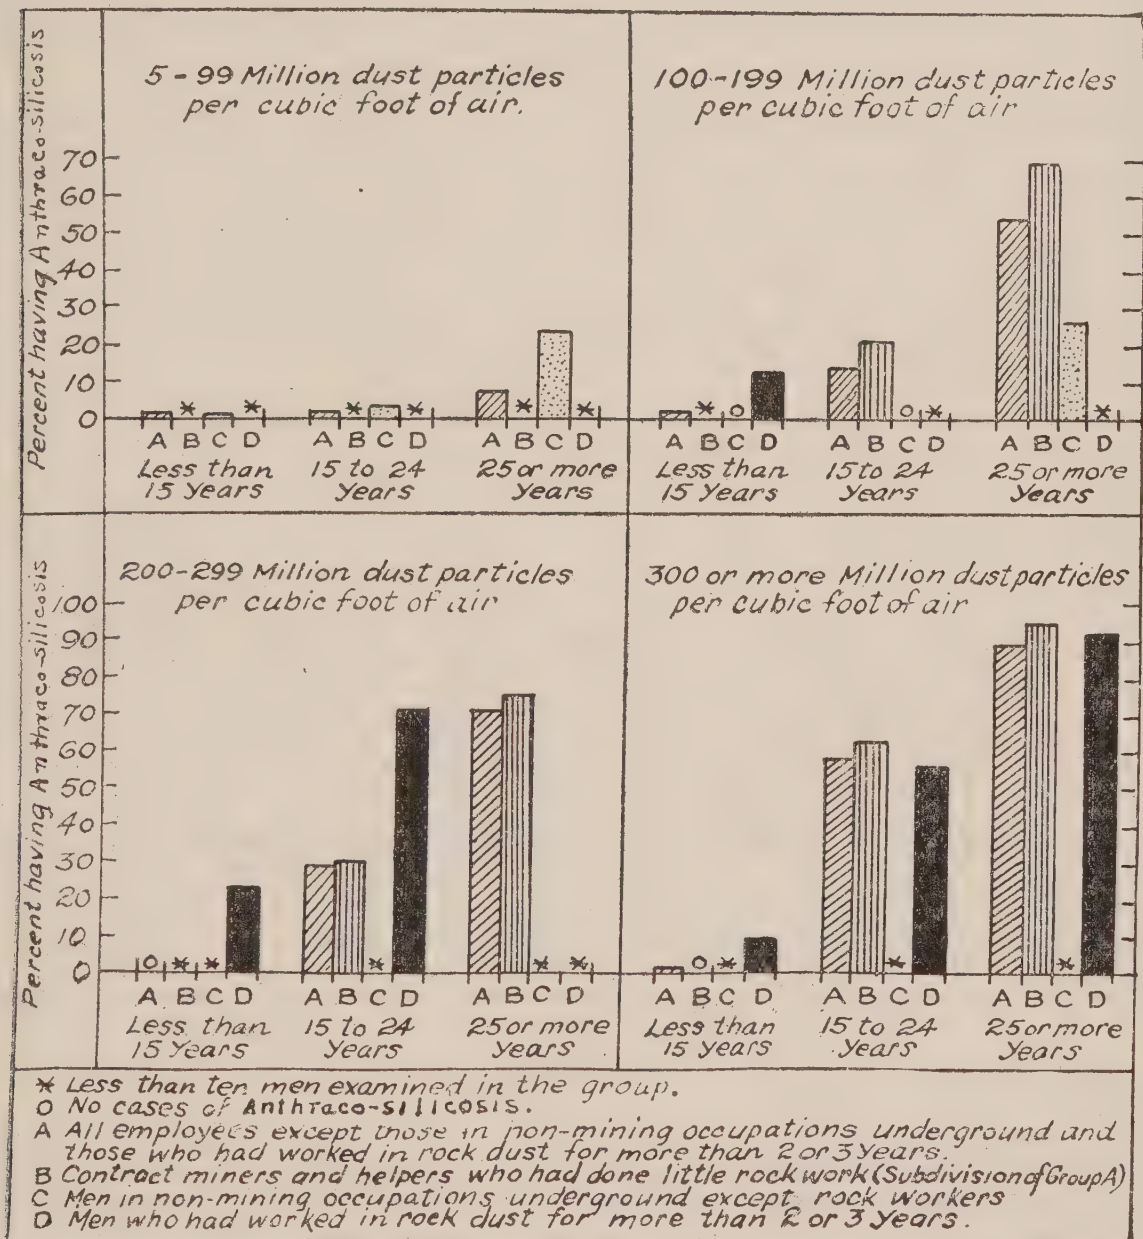 Percent having Anthraco-silicosis
5-99 Million dust particles
per cubic foot of air.
70
60
50
40
30
20
10
0
A * B C D *
A B * C D *
A B * C D *
Less than
15 Years
15 to 24
Years
25 or more
Years
100-199 Million dust particles
per cubic foot of air
A B * C O D
A B C O D *
A B C D *
Less than
15 Years
15 to 24
Years
25 or more
Years
Percent having Anthraco-silicosis
200-299 Million dust particles
per cubic foot of air
100
90
80
70
60
50
40
30
20
10
0
O * *
A B C D
*
A B C D
* *
A B C D
Less than
15 Years
15 to 24
Years
25 or more
Years
300 or more Million dust particles
per cubic foot of air
O *
A B C D
*
A B C D
*
A B C D
Less than
15 Years
15 to 24
Years
25 or more
Years
* Less than ten men examined in the group.
O No cases of Anthraco-silicosis.
A All employees except those in non-mining occupations underground and
those who had worked in rock dust for more than 2 or 3 Years.
B Contract miners and helpers who had done little rock work (Subdivision of Group A)
C Men in non-mining occupations underground except rock workers
D Men who had worked in rock dust for more than 2 or 3 Years.